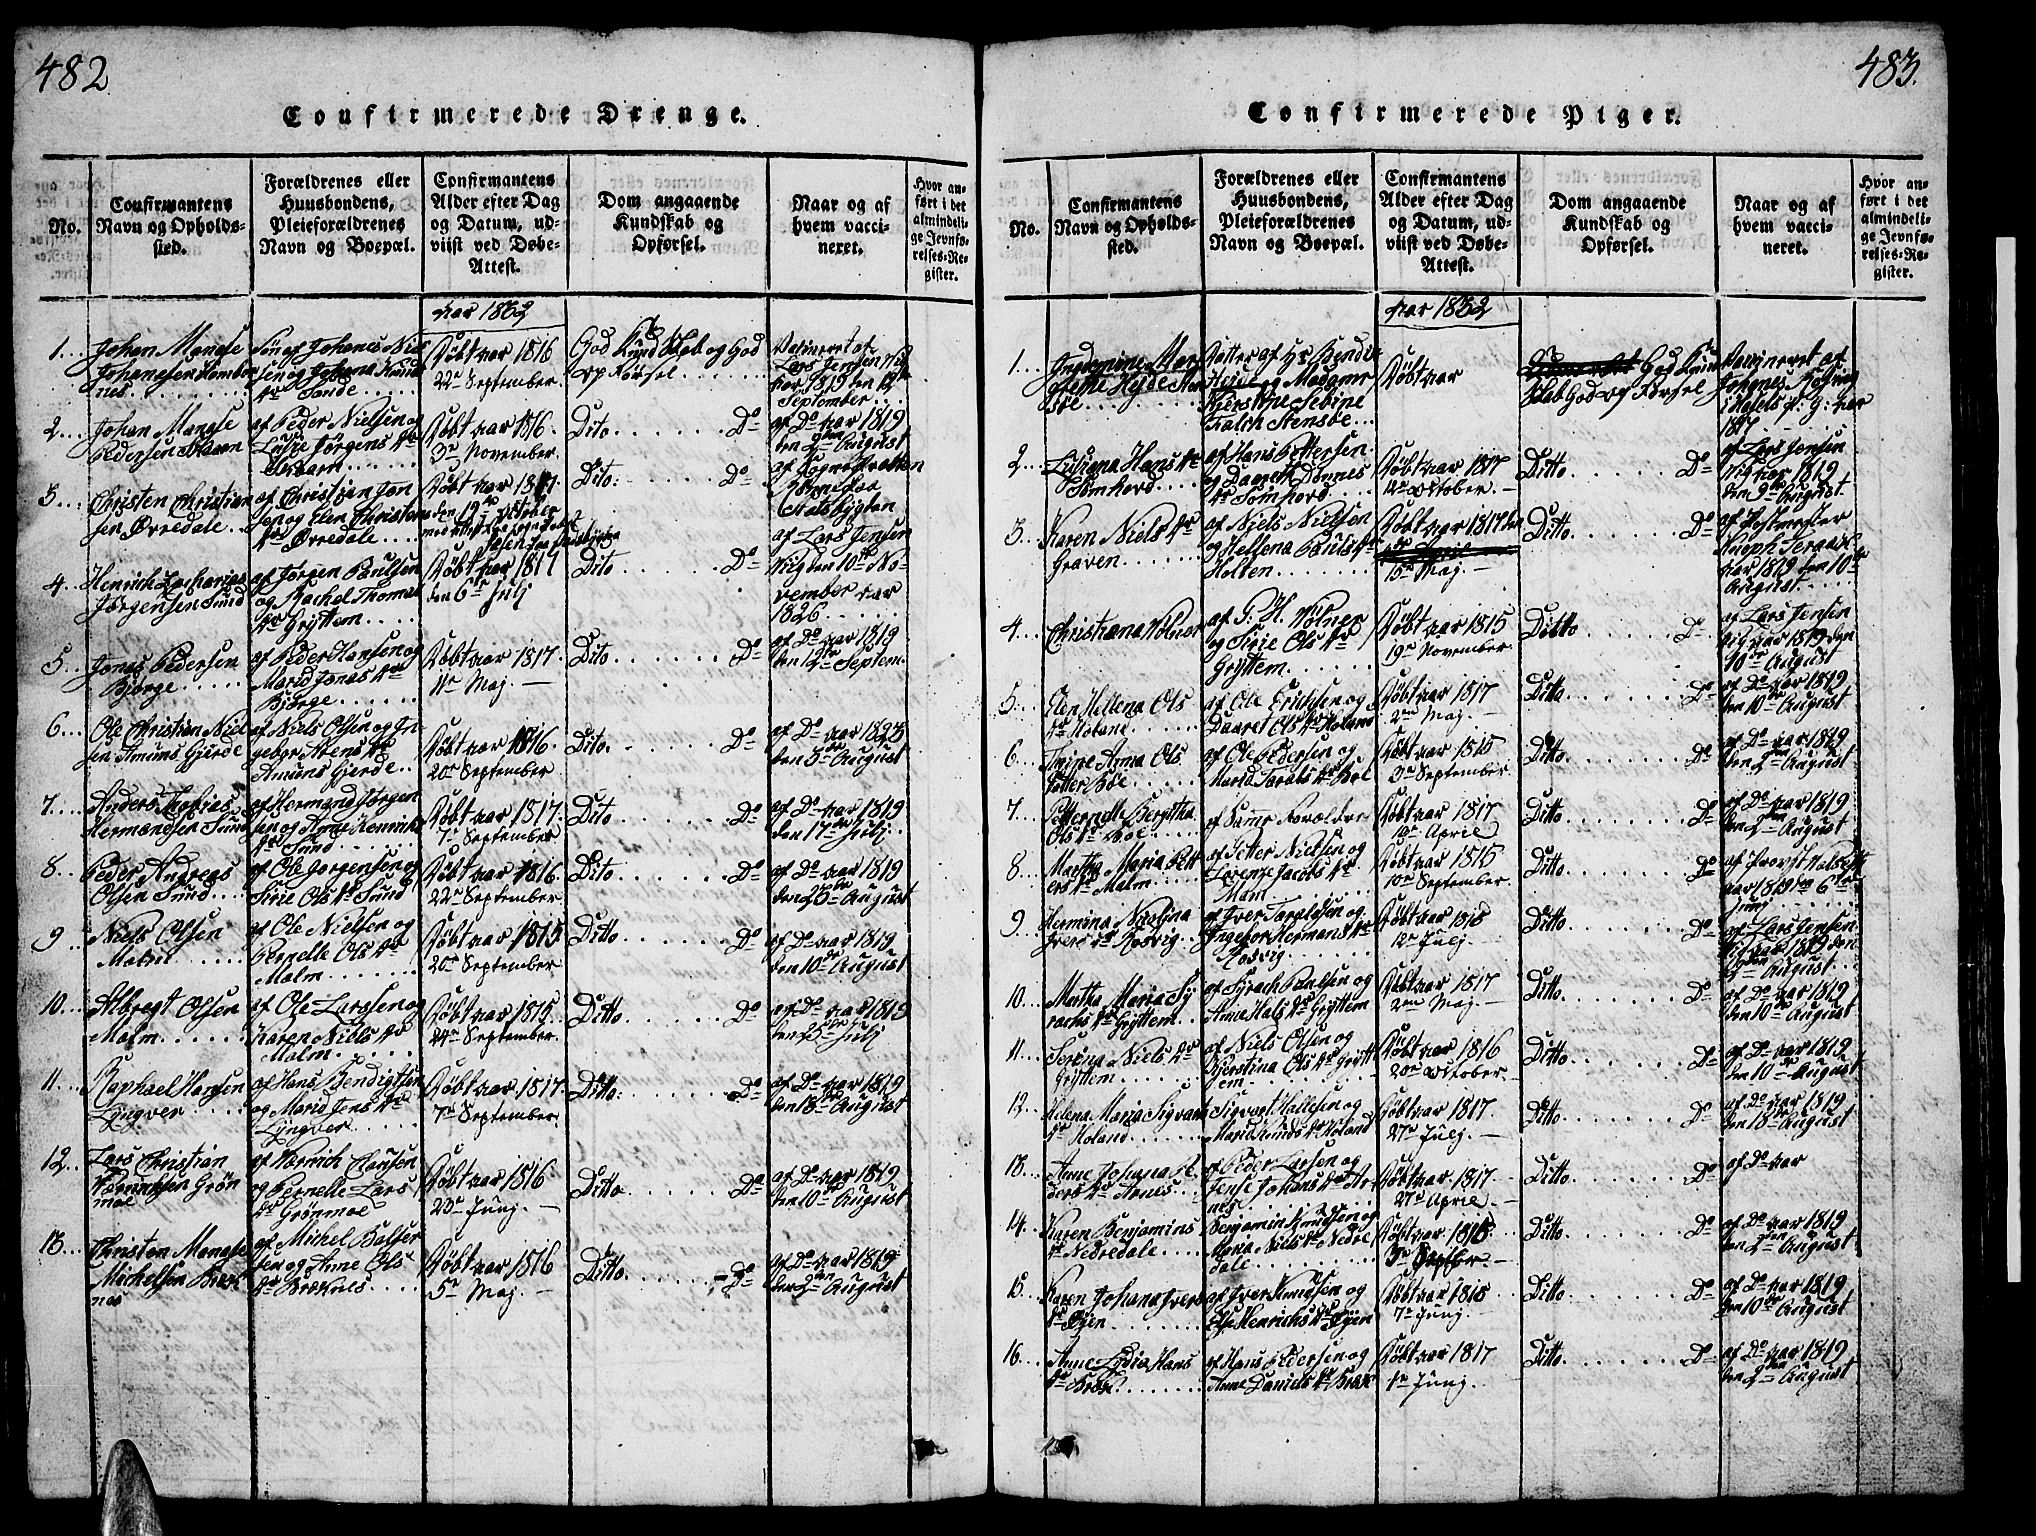 482
Confirmerede Drenge.
No.
Confirmantens
Navn og Opholds-
sted.
Forældrenes eller
Huusbondens,
Pleieforældrenes
Navn og Boepæl.
Confirmantens
Alder efter Dag
og Datum, ud-
viist ved Døbe-
Attest.
Dom angaaende
Kundskab og
Opførsel.
Naar og af
hvem vacci-
neret.
Hvor an-
ført i det
almindeli-
ge Jevnfø-
relses-Re-
gister.
aar 1832
1... Johan Manase
Johanesen
nes
Søn af Johanes Niel
sen og Johana Knuds
dr Sande
Døbt aar 1816
22de September
God Kundskab og God
opførsel
Vacineret af
Lars Jensen Vig
aar 1819 den 12te
September
2... Johan Manase
Pedersen
af Peder Nielsen og
Jørgens dr
Døbt aar 1816.
3de November
Dito Do
af Do aar 1819
den 9den August
3... Christen Christian
sen Ørredale
af Christian Jon
sen og Elen Christens
dr Ørredale
Døbt aar 1817
den 19de October
Dito Do
af
4... Henrich Zacharias
Jørgensen Sund
af Jørgen Paulsen
og Rachel Thomas
dr Gryttem
Døbt aar 1817
den 6te Julj
Dito Do
af Lars Jensen
Vig den 10de No-
vember aar
1826
5... Jonas Pedersen
Bjørge
af Peder Hansen og
Marid Jonas dr
Bjørge
Døbt aar 1817.
11te Maj
Dito Do
af Do aar 1819
den 12te Septem.
6... Ole Christian Niel
sen Amuns Gjerde
af Niels Olsen og In
gebor Stens dr
Amuns Gjerde
Døbt aar 1816.
20de September
Dito Do
af Do aar 1823
den 5te August
7... Anders Tobias
Hermandsen Sund
af Hermand Jørgen
sen og Ane Henrichs
dr Sund
Døbt aar 1817.
7de September
Dito Do
af Do aar 1819
den 17de Julj
8... Peder Andreas
Olsen Sund
af Ole Jørgensen og
Sirie Ols dr Sund
Døbt aar 1816.
22de September
Dito Do
af Do aar 1819
den August
9 Niels Olsen
Malm
af Ole Nielsen og
Pernelle Ols dr
Malm
Døbt aar 1815
26de September
Ditto Do
af Do aar 1819
den 10de August
10. Albregt Olsen
Malm
af Ole Larssen og
Karen Niels dr
Malm
Døbt aar 1815.
24de September
Ditto Do
af Do aar 1819
den Julj
11. Raphael Hansen
Lyngver
af Hans Bendigtsen
og Marid Jens dr
Lyngver
Døbt aar 1817.
7de September
Ditto Do
af Do aar 1819
den 18de August
12. Lars Christian
Henrichsen Grøn
moe
af Henrich Clausen
og Pernelle Lars
dr Grønmoe
Døbt aar 1816
23de Junj
Ditto Do
af Do aar 1819
den 10de August
13. Christen Manase
Michelsen
nes
af Michel Balser
sen og Anne Ols
dr
Døbt aar 1816
5te Maj
Ditto Do
af Do aar 1819
den 2den August
483.
Confirmerede Piger.
No.
Confirmantens
Navn og Opholds-
sted.
Forældrenes eller
Huusbondens,
Pleieforældrenes
Navn og Boepæl.
Confirmantens
Alder efter Dag
og Datum, ud-
viist ved Døbe-
Attest.
Dom angaaende
Kundskab og
Opførsel.
Naar og af
hvem vacci-
neret.
Hvor an-
ført i det
almindeli-
ge Jevnfø-
relses-Re-
gister.
aar 1832
1... Mar
Datter af Hr
og Madame
Sebine
Falch Stensøe
Døbt aar
God Kun
skab God opførsel
Vaccineret af
Johanes
aar
1817
2... Hans dr
Tomhord
af Hans Pettersen
og Daareth Dønnes
dr Tomhord
Døbt aar 1817
12te October
Ditto Do
af Lars Jensen
Vig aar 1819
den 9de August
3... Karen Niels dr
Graven
af Niels Nielsen
og Hellena Pauls dr
Holten
Døbt aar 1817 den
15de Maj
Ditto Do
af Postmester
aar 1819 den 10de
August
4... Christiana Wolner
af G. H. Wolner
og Sirie Ols dr
Gryttem
Døbt aar 1815
19de November
Ditto Do
af Lars Jensen
Vig aar 1819 den
10de August
5... Elen Hellena Ols
dr Holand
af Ole Erichsen og
Daaret Ols dr Holand
Døbt aar 1817
2den Maj
Ditto Do
af Do aar 1819
den 10de August
6... Anna Ols
datter Boe
af Ole Pedersen og
Marid Taralds dr Boe
Døbt aar 1815
3de September
Ditto Do
af Do aar 1819
den 2den August
7... Petternelle Bergitha
Ols dr Boe
af Samme Forældre
Døbt aar 1817
April
Ditto Do
af Do aar 1819
den 2den August
8... Martha Maria Pett
ers dr Malm
af Petter Nielsen og
Lorense Jacobs dr
Malm
Døbt aar 1815
10de September
Ditto Do
af Provst
aar 1819 den 6te
Junj
9... Hermina Nicolina
Ivers dr Rosvig
af Iver Taraldsen og
Ingebor Hermans dr
Rosvig
Døbt aar 1818
12te Julj
Ditto Do
af Lars Jensen
Vig aar 1819 den
9de August
10. Martha Maria Sy
rachs dr Gryttem
af Syrach Paulsen og
Anne Mats dr Gryttem
Døbt aar 1817
2den Maj
Ditto Do
af Do aar 1819
den 10de August
11. Serina Niels dr
Gryttem
af Niels Olsen og
Kjerstina Ols dr Grytt
em
Døbt aar 1816
20de October
Ditto Do
af Do aar 1819
den 10de August
12. Helena Maria Sigvarts
dr Holand
Sigvart Hallesen og
Marid Knuds dr Holand
Døbt aar 1817.
27de Julj
Ditto Do
af Do aar 1819
den 18de August
13. Anne Johana Pe
ders dr Arnes
af Peder Larsen og
Jense Johans dr Ar
nes
Døbt aar 1817
27de April
Ditto Do
af Do aar
14. Karen Benjamins
dr Nedredale
Benjamin Knudsen og
Maria Niels dr Nedre
dale
Døbt aar 1815
3de
Ditto Do
af Do aar 1819
den 2den August
15. Karen Johana Ivers
dr Øyen
af Iver Knudsen og
Else Henrichs dr Øyen
Døbt aar 1818
7de Junj
Ditto Do
af Do aar 1819
den 10de August
16. Anne Lydia Hans
dr
af Hans Pedersen og
Anne Daniels dr
Døbt aar 1817
1te Junj
Ditto Do
af Do aar 1819
den 2den August